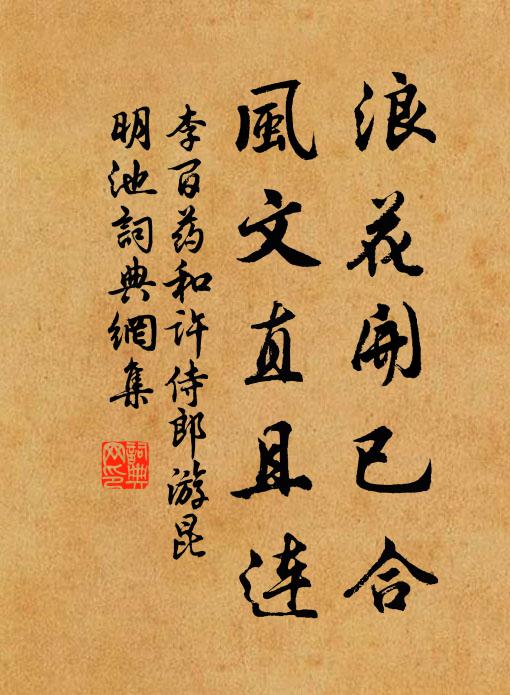 浪花開已合
風文直且連
李百药和许侍郎游昆
明池詞典網集
詞典网印